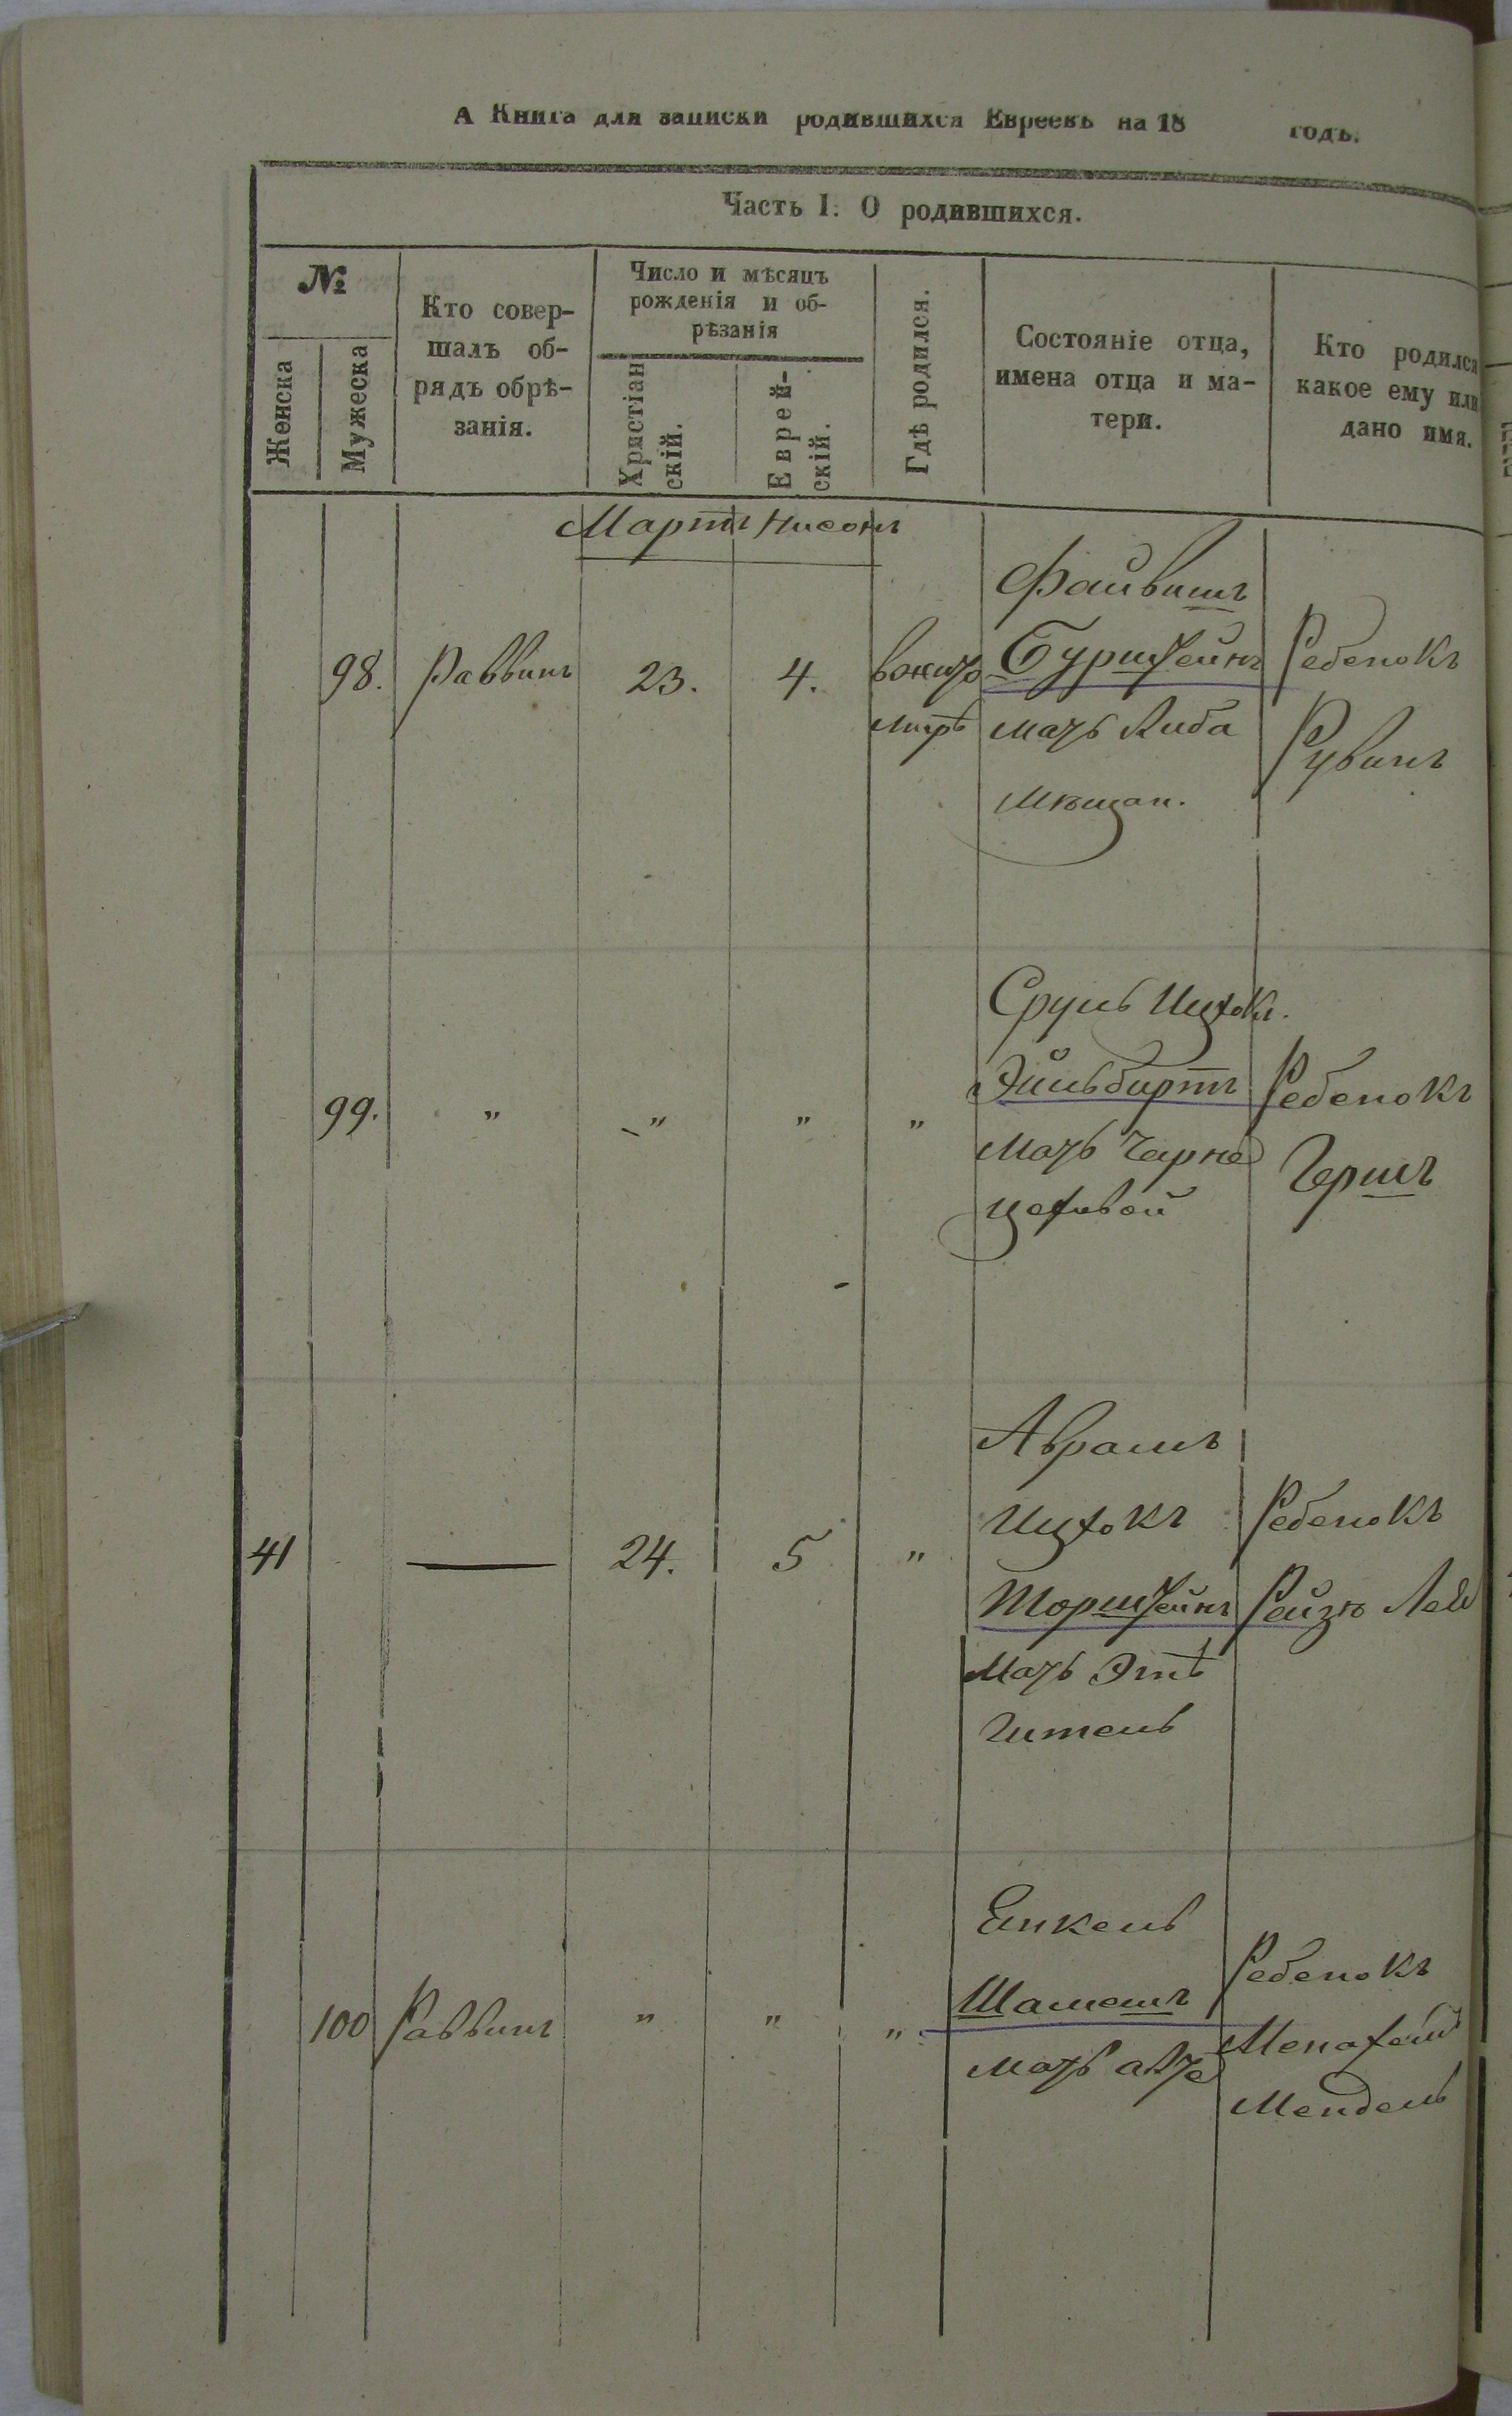 А Книга для записки родившихся Евреевъ на 18 годъ.
Часть I. О родившихся.
№
Женска
Мужеска
Кто совер-
шалъ об-
рядъ обрѣ-
занія.
Число и мѣсяцъ
рожденія и об-
рѣзанія
Христіан
скій.
Еврей-
скій.
Гдѣ родился.
Состояніе отца,
имена отца и ма-
тери.
Кто родился
какое ему или
дано имя.
Мартъ Нисонъ
98. Раввинъ 23. 4.
Файвишъ
Бурштейнъ
мать Либа
мѣщан.
Ребенокъ
Рувинъ
99. " " " "
Сруль Ицхокъ.
мать Чарне
цеховой
Ребенокъ
Гершъ
41 — 24. 5 "
Аврамъ
Ицхокъ
Морштейнъ
мать Этѣ
Гитель
Ребенокъ
Рейзѣ Лея
100 Раввинъ " " "
Янкель
Шамешъ
мать
Ребенокъ
Менахем
Мендель